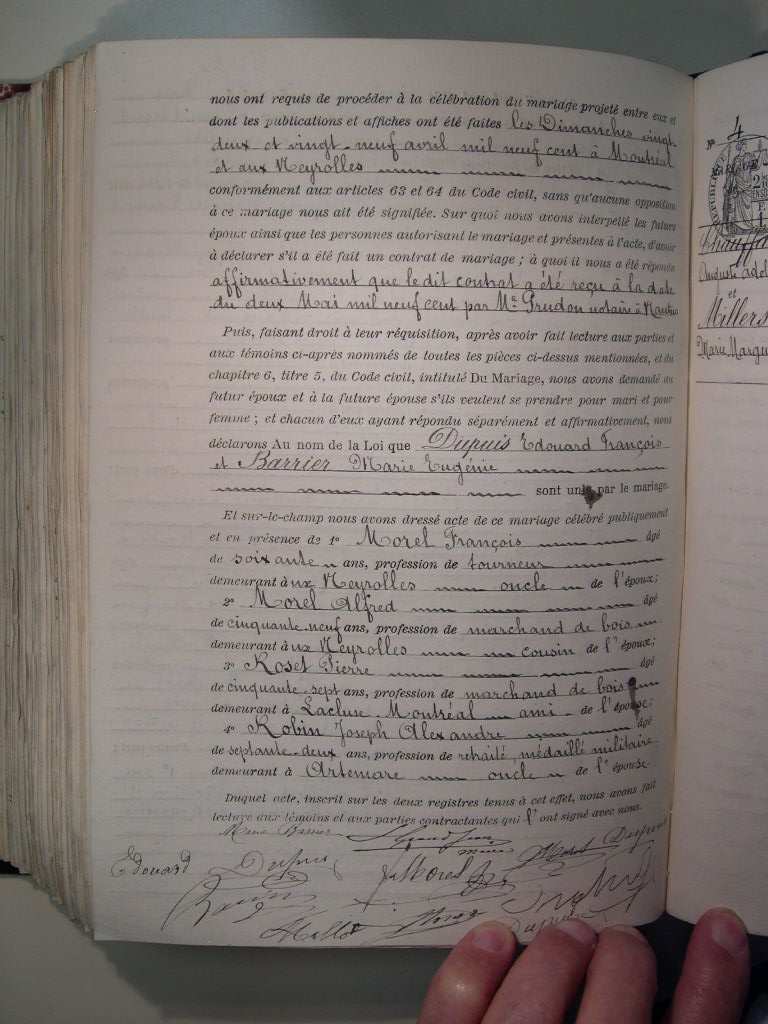 nous ont requis de procéder à la célébration du mariage projeté entre eux et
dont les publications et affiches ont été faites les Dimanches vingt
deux et vingt-neuf avril mil neuf cent à Montréal
et aux Neyrolles
conformément aux articles 63 et 64 du Code civil, sans qu'aucune opposition
à ce mariage nous ait été signifiée. Sur quoi nous avons interpellé les futurs
époux ainsi que les personnes autorisant le mariage et présentes à l'acte, d'avoir
à déclarer s'il a été fait un contrat de mariage ; à quoi il nous a été répondu
affirmativement que le dit contrat a été reçu à la date
du deux Mai mil neuf cent par Me Prudon notaire à Nantua
Puis, faisant droit à leur réquisition, après avoir fait lecture aux parties et
aux témoins ci-après nommés de toutes les pièces ci-dessus mentionnées, et du
chapitre 6, titre 5, du Code civil, intitulé Du Mariage, nous avons demandé au
futur époux et à la future épouse s'ils veulent se prendre pour mari et pour
femme ; et chacun d'eux ayant répondu séparément et affirmativement, nous
déclarons Au nom de la Loi que Dupuis Edouard François
et Barrier Marie Eugénie
sont unis par le mariage.
Et sur-le-champ nous avons dressé acte de ce mariage célébré publiquement
et en présence de 1° Morel François âgé
de soixante ans, profession de tourneur
demeurant aux Neyrolles oncle de l'époux ;
2° Morel Alfred âgé
de cinquante-neuf ans, profession de marchand de bois
demeurant aux Neyrolles cousin de l'époux ;
3° Roset Pierre âgé
de cinquante-sept ans, profession de marchand de bois
demeurant à Lacluse-Montréal ami de l'épouse ;
4° Robin Joseph Alexandre âgé
de septante-deux ans, profession de retraité, médaillé militaire
demeurant à Artemare oncle de l'épouse.
Duquel acte, inscrit sur les deux registres tenus à cet effet, nous avons fait
lecture aux témoins et aux parties contractantes qui l'ont signé avec nous.
Edouard Dupuis
Morel
Dupuis
N° 4
Chauffa
Auguste Adel
et
Millers
Marie Margu